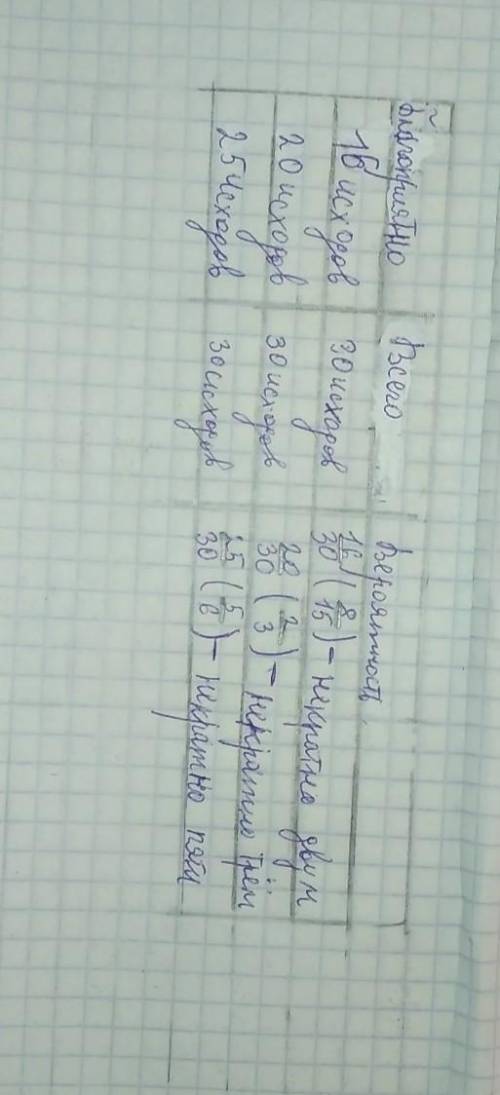 Благоприятно Всего Вероятность
16 исходов 30 исходов 16/30 (8/15) - некратно двум
20 исходов 30 исходов 20/30 (2/3) - некратно трём
25 исходов 30 исходов 25/30 (5/6) - некратно пяти